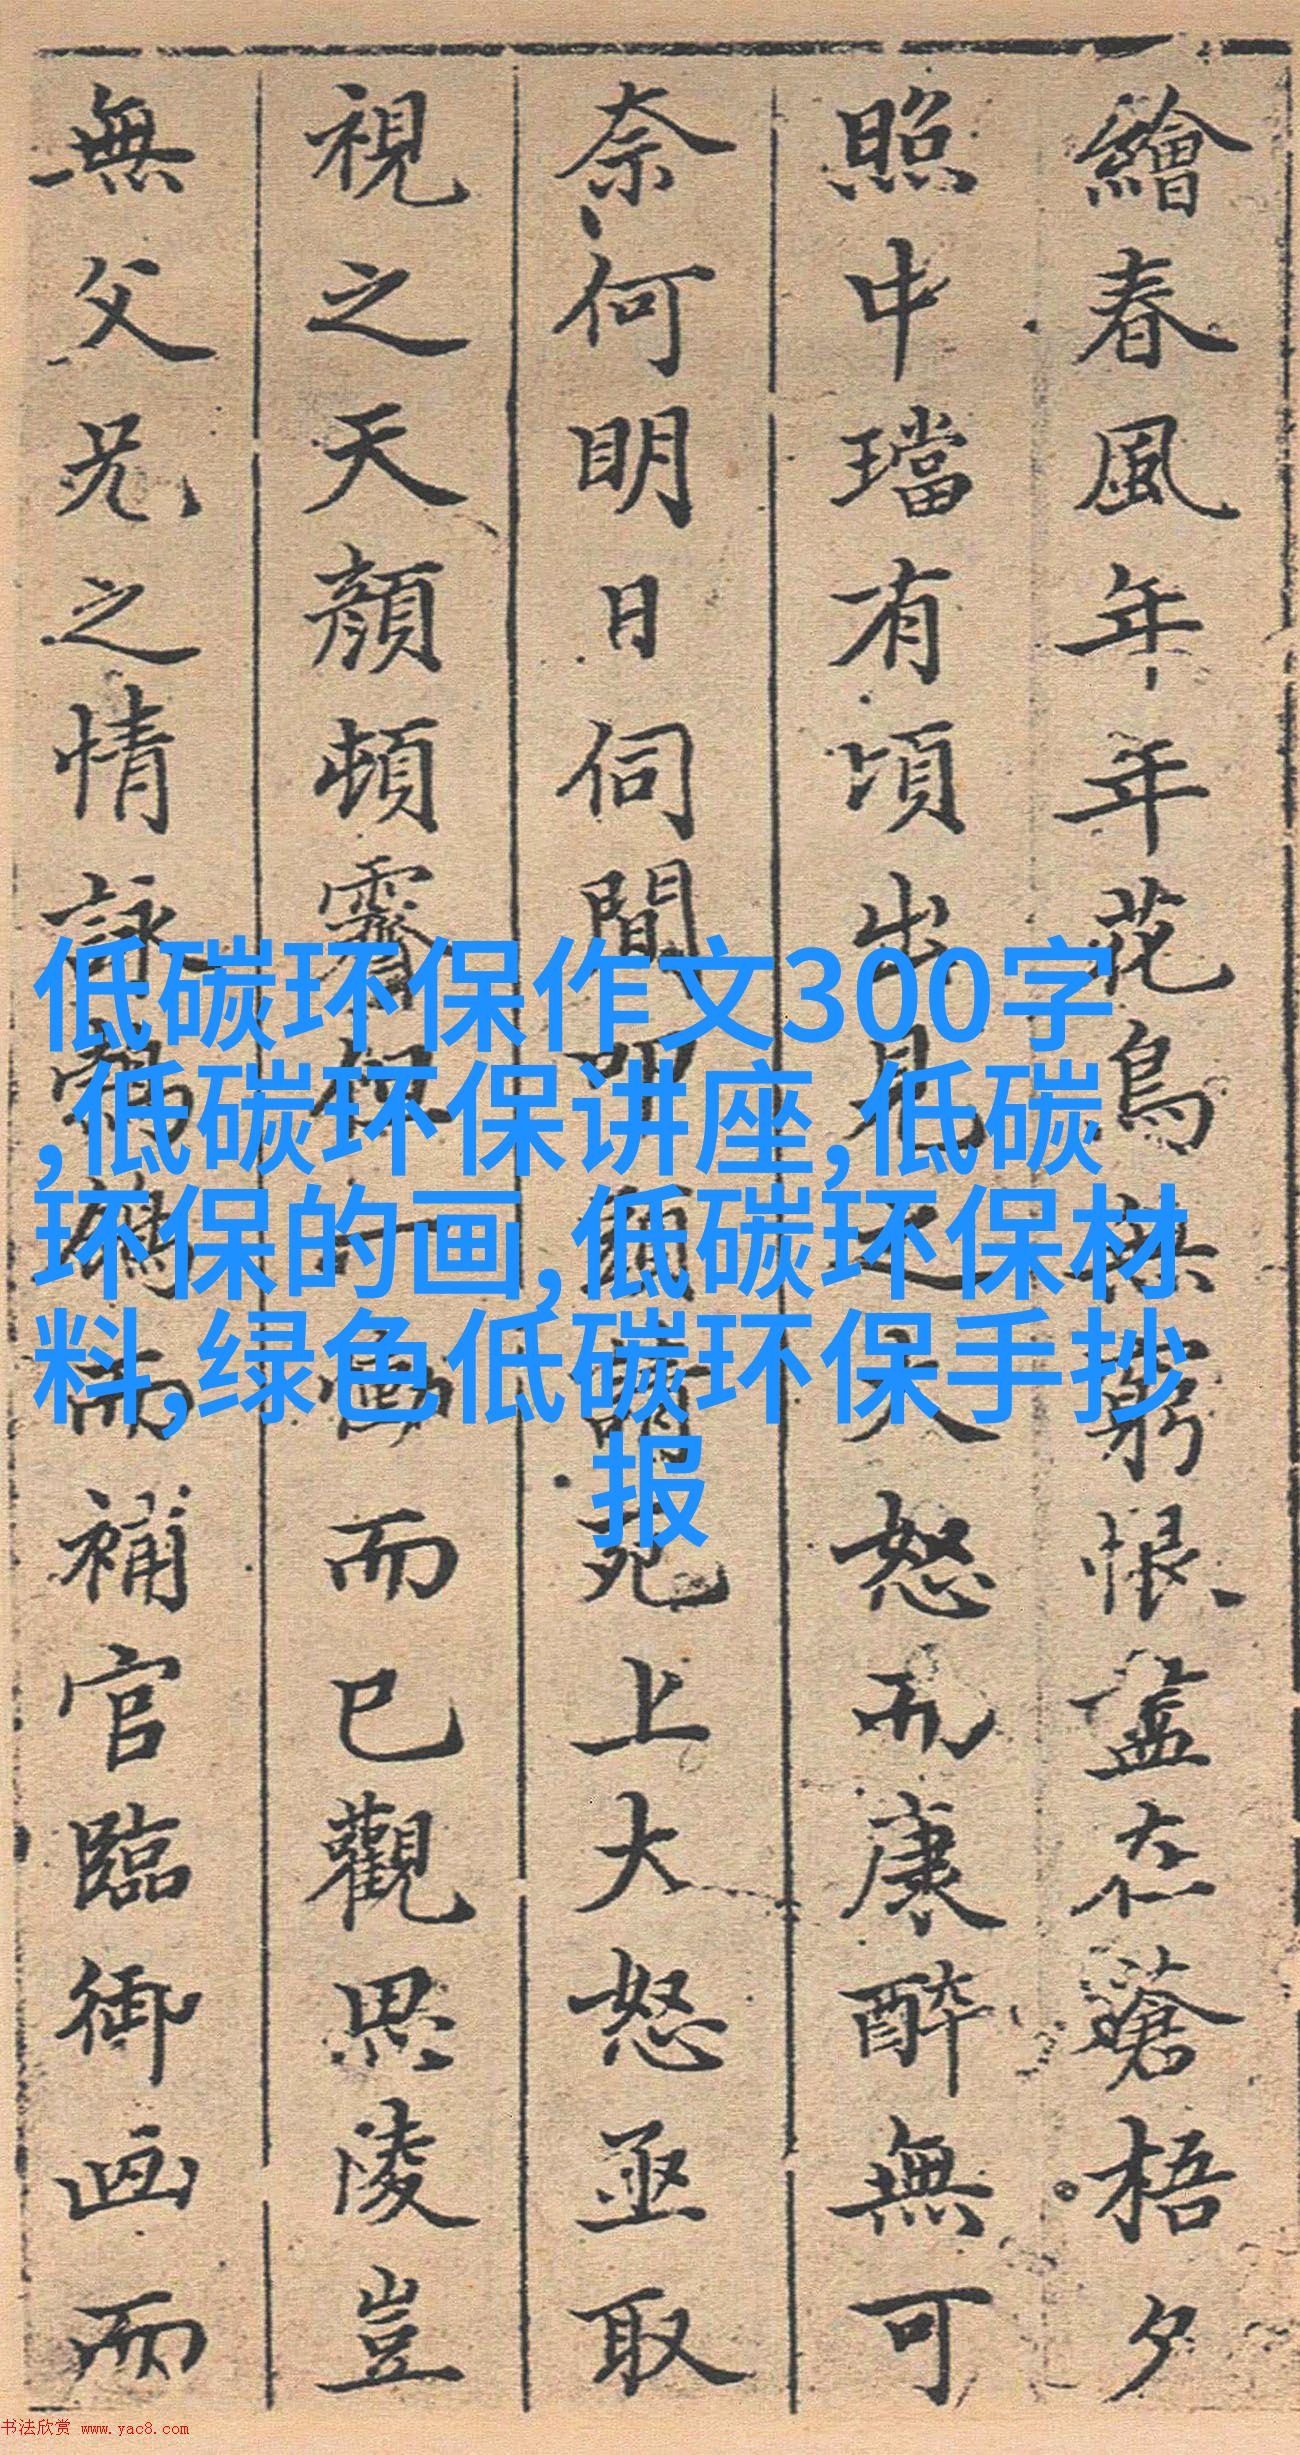 繪春風年年花鳥無窮恨盡在蒼梧夕
照中璫有頃出見之大怒而康醉無可
奈何明日伺間叩頭請死上大怒亟取
視之天顏頓霽但一慟而已觀思陵豈
無父兄之情詠鶺鴒而補官臨御画而
低碳环保作文300字
,低碳环保讲座,低碳
环保的画,低碳环保材
料,绿色低碳环保手抄
报
书法欣赏 www.yac8.com